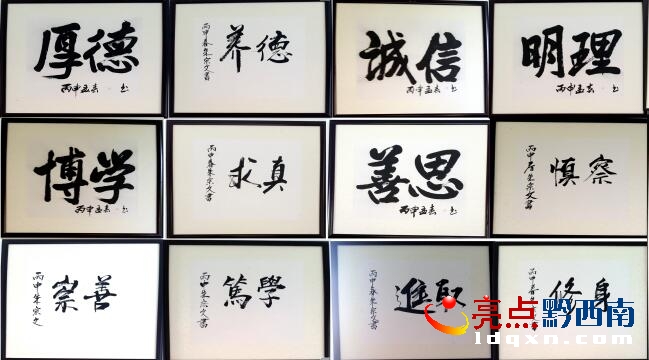 厚德
丙申孟春 书
养德
丙申春朱宗文书
誠信
丙申孟春 书
明理
丙申孟春 书
博学
丙申孟春 书
求真
丙申春朱宗文书
善思
丙申孟春 书
慎察
丙申春朱宗文書
崇善
丙申朱宗文
篤學
丙申朱宗文書
進取
丙申春朱宗文書
修身
丙申春
亮点黔西南
ldqxn.com